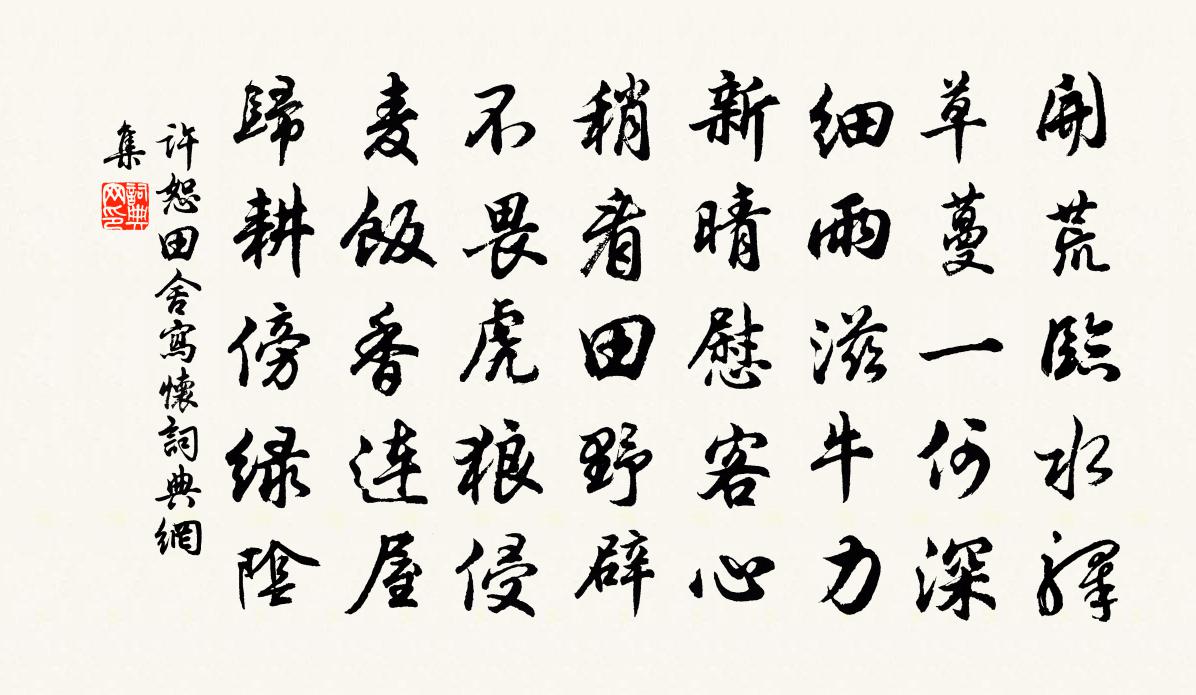 開荒臨水驛
草蔓一何深
細雨滋牛力
新晴慰客心
稍看田野辟
不畏虎狼侵
麦飯香連屋
歸耕傍緑陰
許恕田舍寫懷詞典網
集
詞典
网印